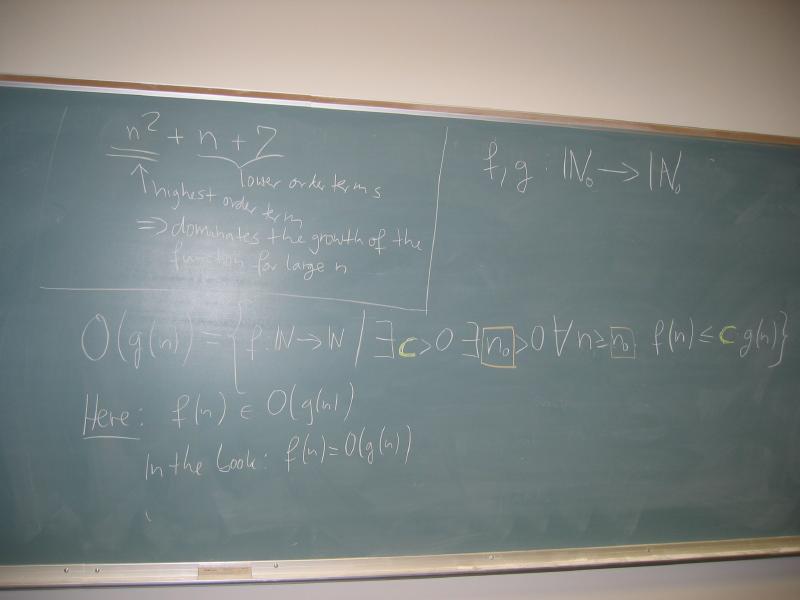 n² + n + 2
lower order terms
highest order
term
⇒ dominates the growth of the
function for large n
f, g : ℕ₀ → ℕ₀
O(g(n)) = { f : ℕ → ℕ | ∃ c > 0 ∃ n₀ > 0 ∀ n ≥ n₀ f(n) ≤ c g(n)}
Here: f(n) ∈ O(g(n))
In the book: f(n) = O(g(n))